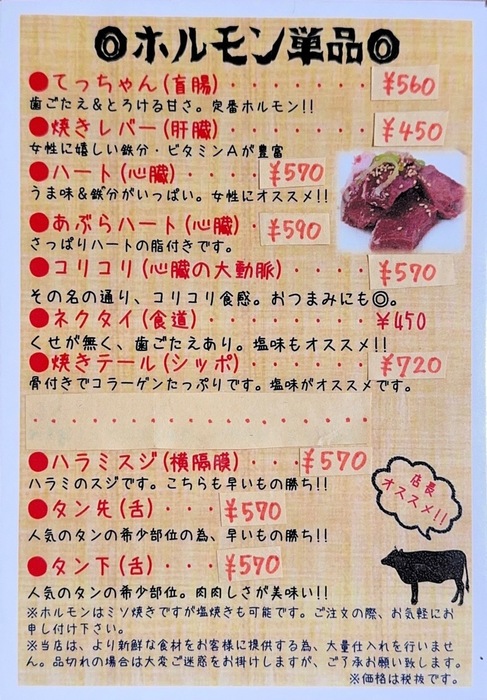 ◎ホルモン単品◎
●てっちゃん(盲腸)・・・・・・・¥560
歯ごたえ&とろける甘さ。定番ホルモン!!
●焼きレバー(肝臓)・・・・・・・¥450
女性に嬉しい鉄分・ビタミンAが豊富
●ハート(心臓)・・・・¥570
うま味&鉄分がいっぱい。女性にオススメ!!
●あぶらハート(心臓)・¥590
さっぱりハートの脂付きです。
●コリコリ(心臓の大動脈)・・・・¥570
その名の通り、コリコリ食感。おつまみにも◎。
●ネクタイ(食道)・・・・・・・・¥450
くせが無く、歯ごたえあり。塩味もオススメ!!
●焼きテール(シッポ)・・・・・・¥720
骨付きでコラーゲンたっぷりです。塩味がオススメです。
・・・・・・・・・・・・・・・・・
●ハラミスジ(横隔膜)・・・¥570
ハラミのスジです。こちらも早いもの勝ち!!
●タン先(舌)・・・¥570
人気のタンの希少部位の為、早いもの勝ち!!
●タン下(舌)・・・¥570
人気のタンの希少部位。肉肉しさが美味い!!
店長
オススメ!!
※ホルモンはミソ焼きですが塩焼きも可能です。ご注文の際、お気軽にお
申し付け下さい。
※当店は、より新鮮な食材をお客様に提供する為、大量仕入れを行いませ
ん。品切れの場合は大変ご迷惑をお掛けしますが、ご了承お願い致します。
※価格は税抜です。